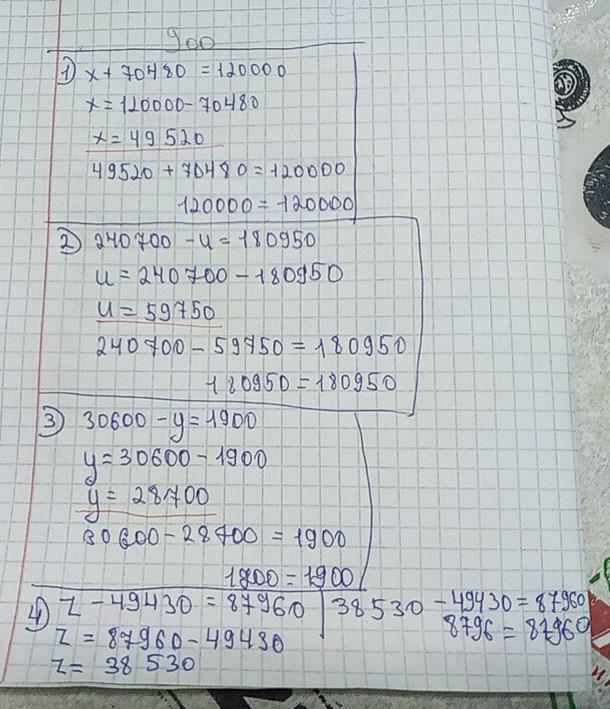 900
1) x + 70480 = 120000
x = 120000 - 70480
x = 49520
49520 + 70480 = 120000
120000 = 120000
2) 240700 - u = 180950
u = 240700 - 180950
u = 59750
240700 - 59750 = 180950
180950 = 180950
3) 30600 - y = 1900
y = 30600 - 1900
y = 28700
30600 - 28700 = 1900
1900 = 1900
4) z - 49430 = 87960
z = 87960 - 49430
z = 38530
38530 - 49430 = 87960
8796 = 87960